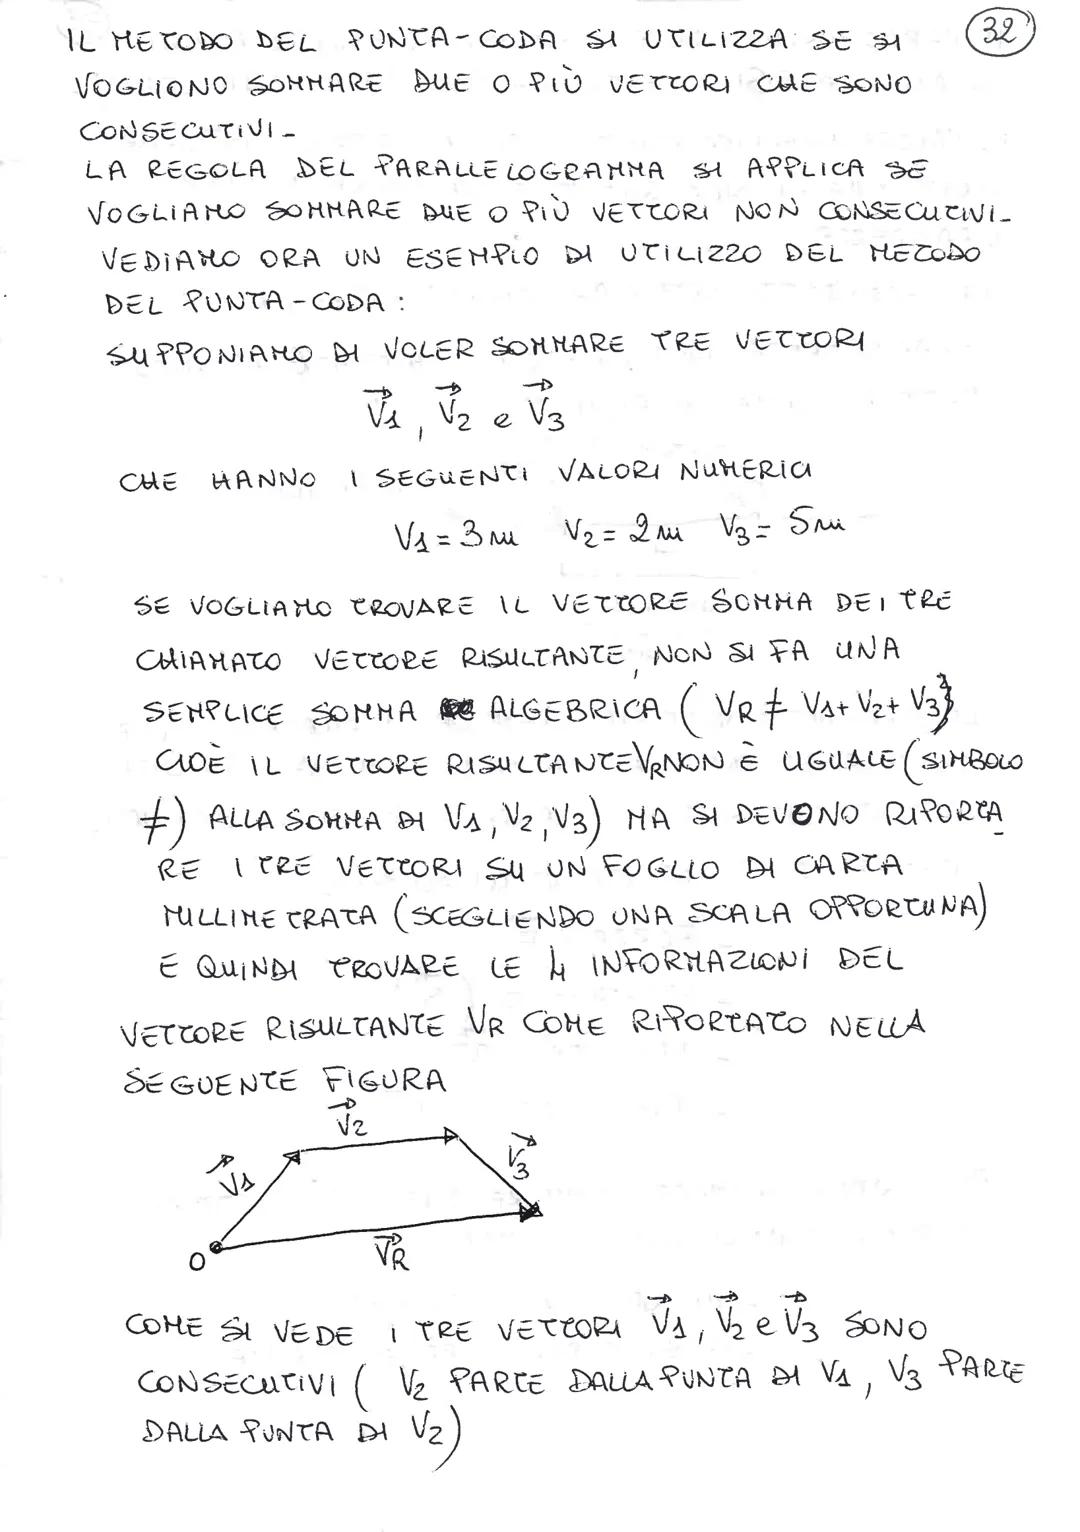 32
IL METODO DEL PUNTA-CODA SI UTILIZZA SE SI
VOGLIONO SOMMARE DUE O PIÙ VETTORI CHE SONO
CONSECUTIVI-
LA REGOLA DEL PARALLELOGRAMMA SI APPLICA SE
VOGLIAMO SOMMARE DUE O PIÙ VETTORI NON CONSECUTIVI-
VEDIAMO ORA UN ESEMPIO DI UTILIZZO DEL METODO
DEL PUNTA-CODA:
SUPPONIAMO DI VOLER SOMMARE TRE VETTORI
V⃗1, V⃗2 e V⃗3
CHE HANNO I SEGUENTI VALORI NUMERICI
V1 = 3m V2 = 2m V3 = 5m
SE VOGLIAMO TROVARE IL VETTORE SOMMA DEI TRE
CHIAMATO VETTORE RISULTANTE, NON SI FA UNA
SEMPLICE SOMMA ALGEBRICA ( VR ≠ V1+ V2+ V3}
CIOÈ IL VETTORE RISULTANTE VR NON È UGUALE (SIMBOLO
≠) ALLA SOMMA DI V1, V2, V3) MA SI DEVONO RIPORTA
RE I TRE VETTORI SU UN FOGLIO DI CARTA
MILLIMETRATA (SCEGLIENDO UNA SCALA OPPORTUNA)
E QUINDI TROVARE LE 4 INFORMAZIONI DEL
VETTORE RISULTANTE VR COME RIPORTATO NELLA
SEGUENTE FIGURA
V⃗2
V⃗1
V⃗3
O
V⃗R
COME SI VEDE I TRE VETTORI V⃗1, V⃗2 e V⃗3 SONO
CONSECUTIVI ( V2 PARTE DALLA PUNTA DI V1, V3 PARTE
DALLA PUNTA DI V2)